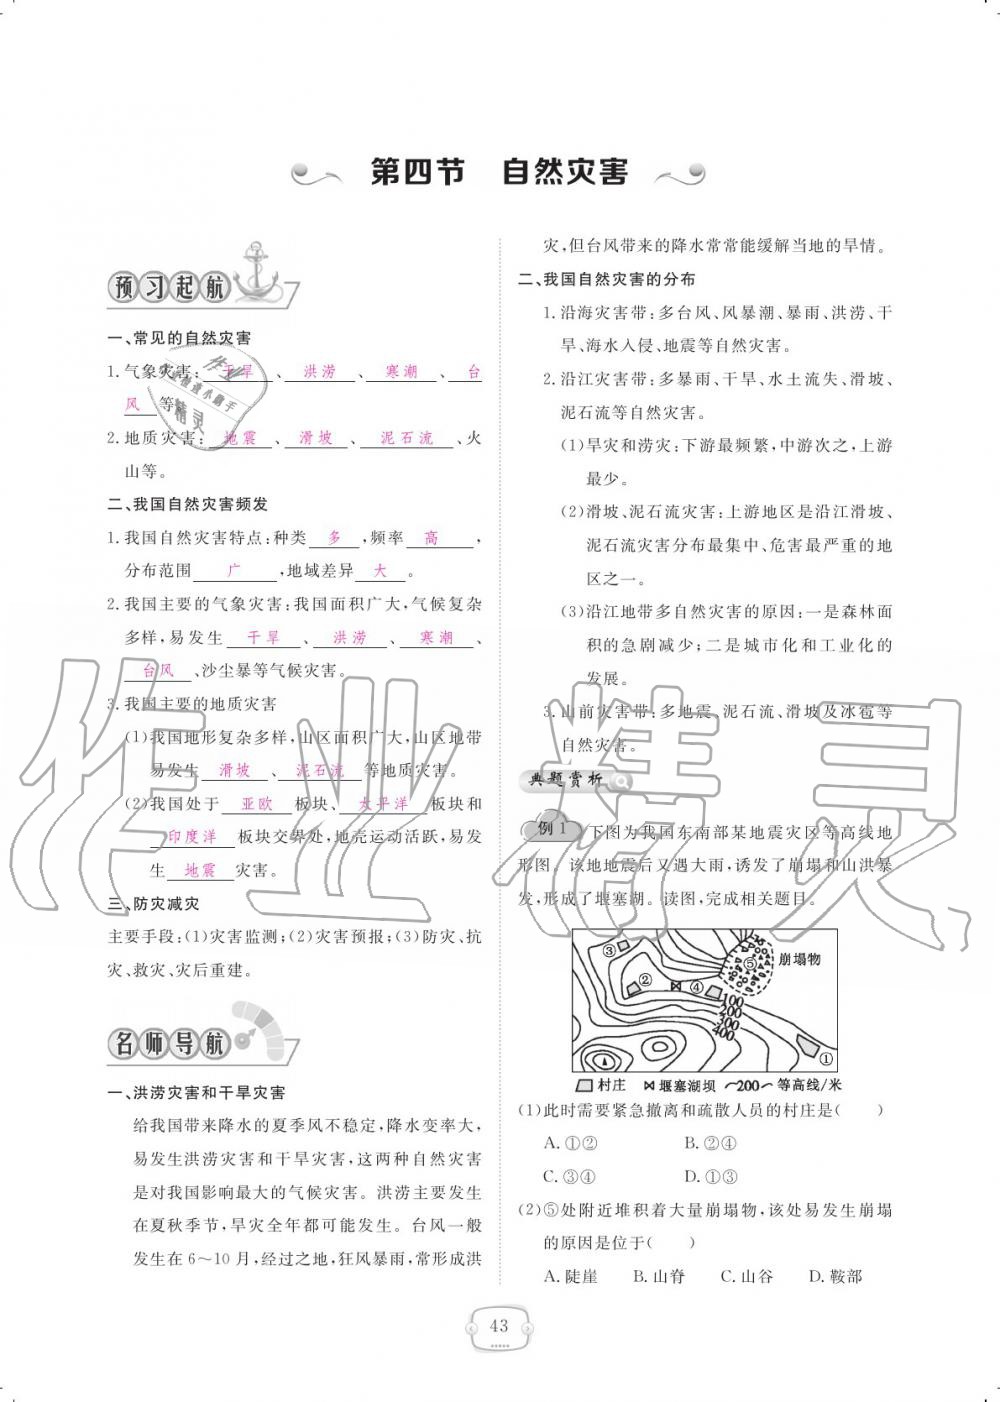 第四节 自然灾害
预习起航
一、常见的自然灾害
1. 气象灾害: 干旱 、 洪涝 、 寒潮 、 台
风 等。
2. 地质灾害: 地震 、 滑坡 、 泥石流 、火
山等。
二、我国自然灾害频发
1. 我国自然灾害特点:种类 多 ,频率 高 ,
分布范围 广 ,地域差异 大 。
2. 我国主要的气象灾害:我国面积广大,气候复杂
多样,易发生 干旱 、 洪涝 、 寒潮 、
台风 、沙尘暴等气候灾害。
3. 我国主要的地质灾害
(1)我国地形复杂多样,山区面积广大,山区地带
易发生 滑坡 、 泥石流 等地质灾害。
(2)我国处于 亚欧 板块、 太平洋 板块和
印度洋 板块交界处,地壳运动活跃,易发
生 地震 灾害。
三、防灾减灾
主要手段:(1)灾害监测;(2)灾害预报;(3)防灾、抗
灾、救灾、灾后重建。
名师导航
一、洪涝灾害和干旱灾害
给我国带来降水的夏季风不稳定,降水变率大,
易发生洪涝灾害和干旱灾害,这两种自然灾害
是对我国影响最大的气候灾害。洪涝主要发生
在夏秋季节,旱灾全年都可能发生。台风一般
发生在 6～10 月,经过之地,狂风暴雨,常形成洪
灾,但台风带来的降水常常能缓解当地的旱情。
二、我国自然灾害的分布
1. 沿海灾害带:多台风、风暴潮、暴雨、洪涝、干
旱、海水入侵、地震等自然灾害。
2. 沿江灾害带:多暴雨、干旱、水土流失、滑坡、
泥石流等自然灾害。
(1)旱灾和涝灾:下游最频繁,中游次之,上游
最少。
(2)滑坡、泥石流灾害:上游地区是沿江滑坡、
泥石流灾害分布最集中、危害最严重的地
区之一。
(3)沿江地带多自然灾害的原因:一是森林面
积的急剧减少;二是城市化和工业化的
发展。
3. 山前灾害带:多地震、泥石流、滑坡及冰雹等
自然灾害。
典题赏析
例 1 下图为我国东南部某地震灾区等高线地
形图。该地地震后又遇大雨,诱发了崩塌和山洪暴
发,形成了堰塞湖。读图,完成相关题目。
③ ② ④ ⑤ 崩塌物
100
200
300
400
①
村庄 堰塞湖坝 200 等高线/米
(1)此时需要紧急撤离和疏散人员的村庄是( )
A. ①② B. ②④
C. ③④ D. ①③
(2)⑤处附近堆积着大量崩塌物,该处易发生崩塌
的原因是位于( )
A. 陡崖 B. 山脊 C. 山谷 D. 鞍部
43
作业精灵
作业检查小助手
精灵